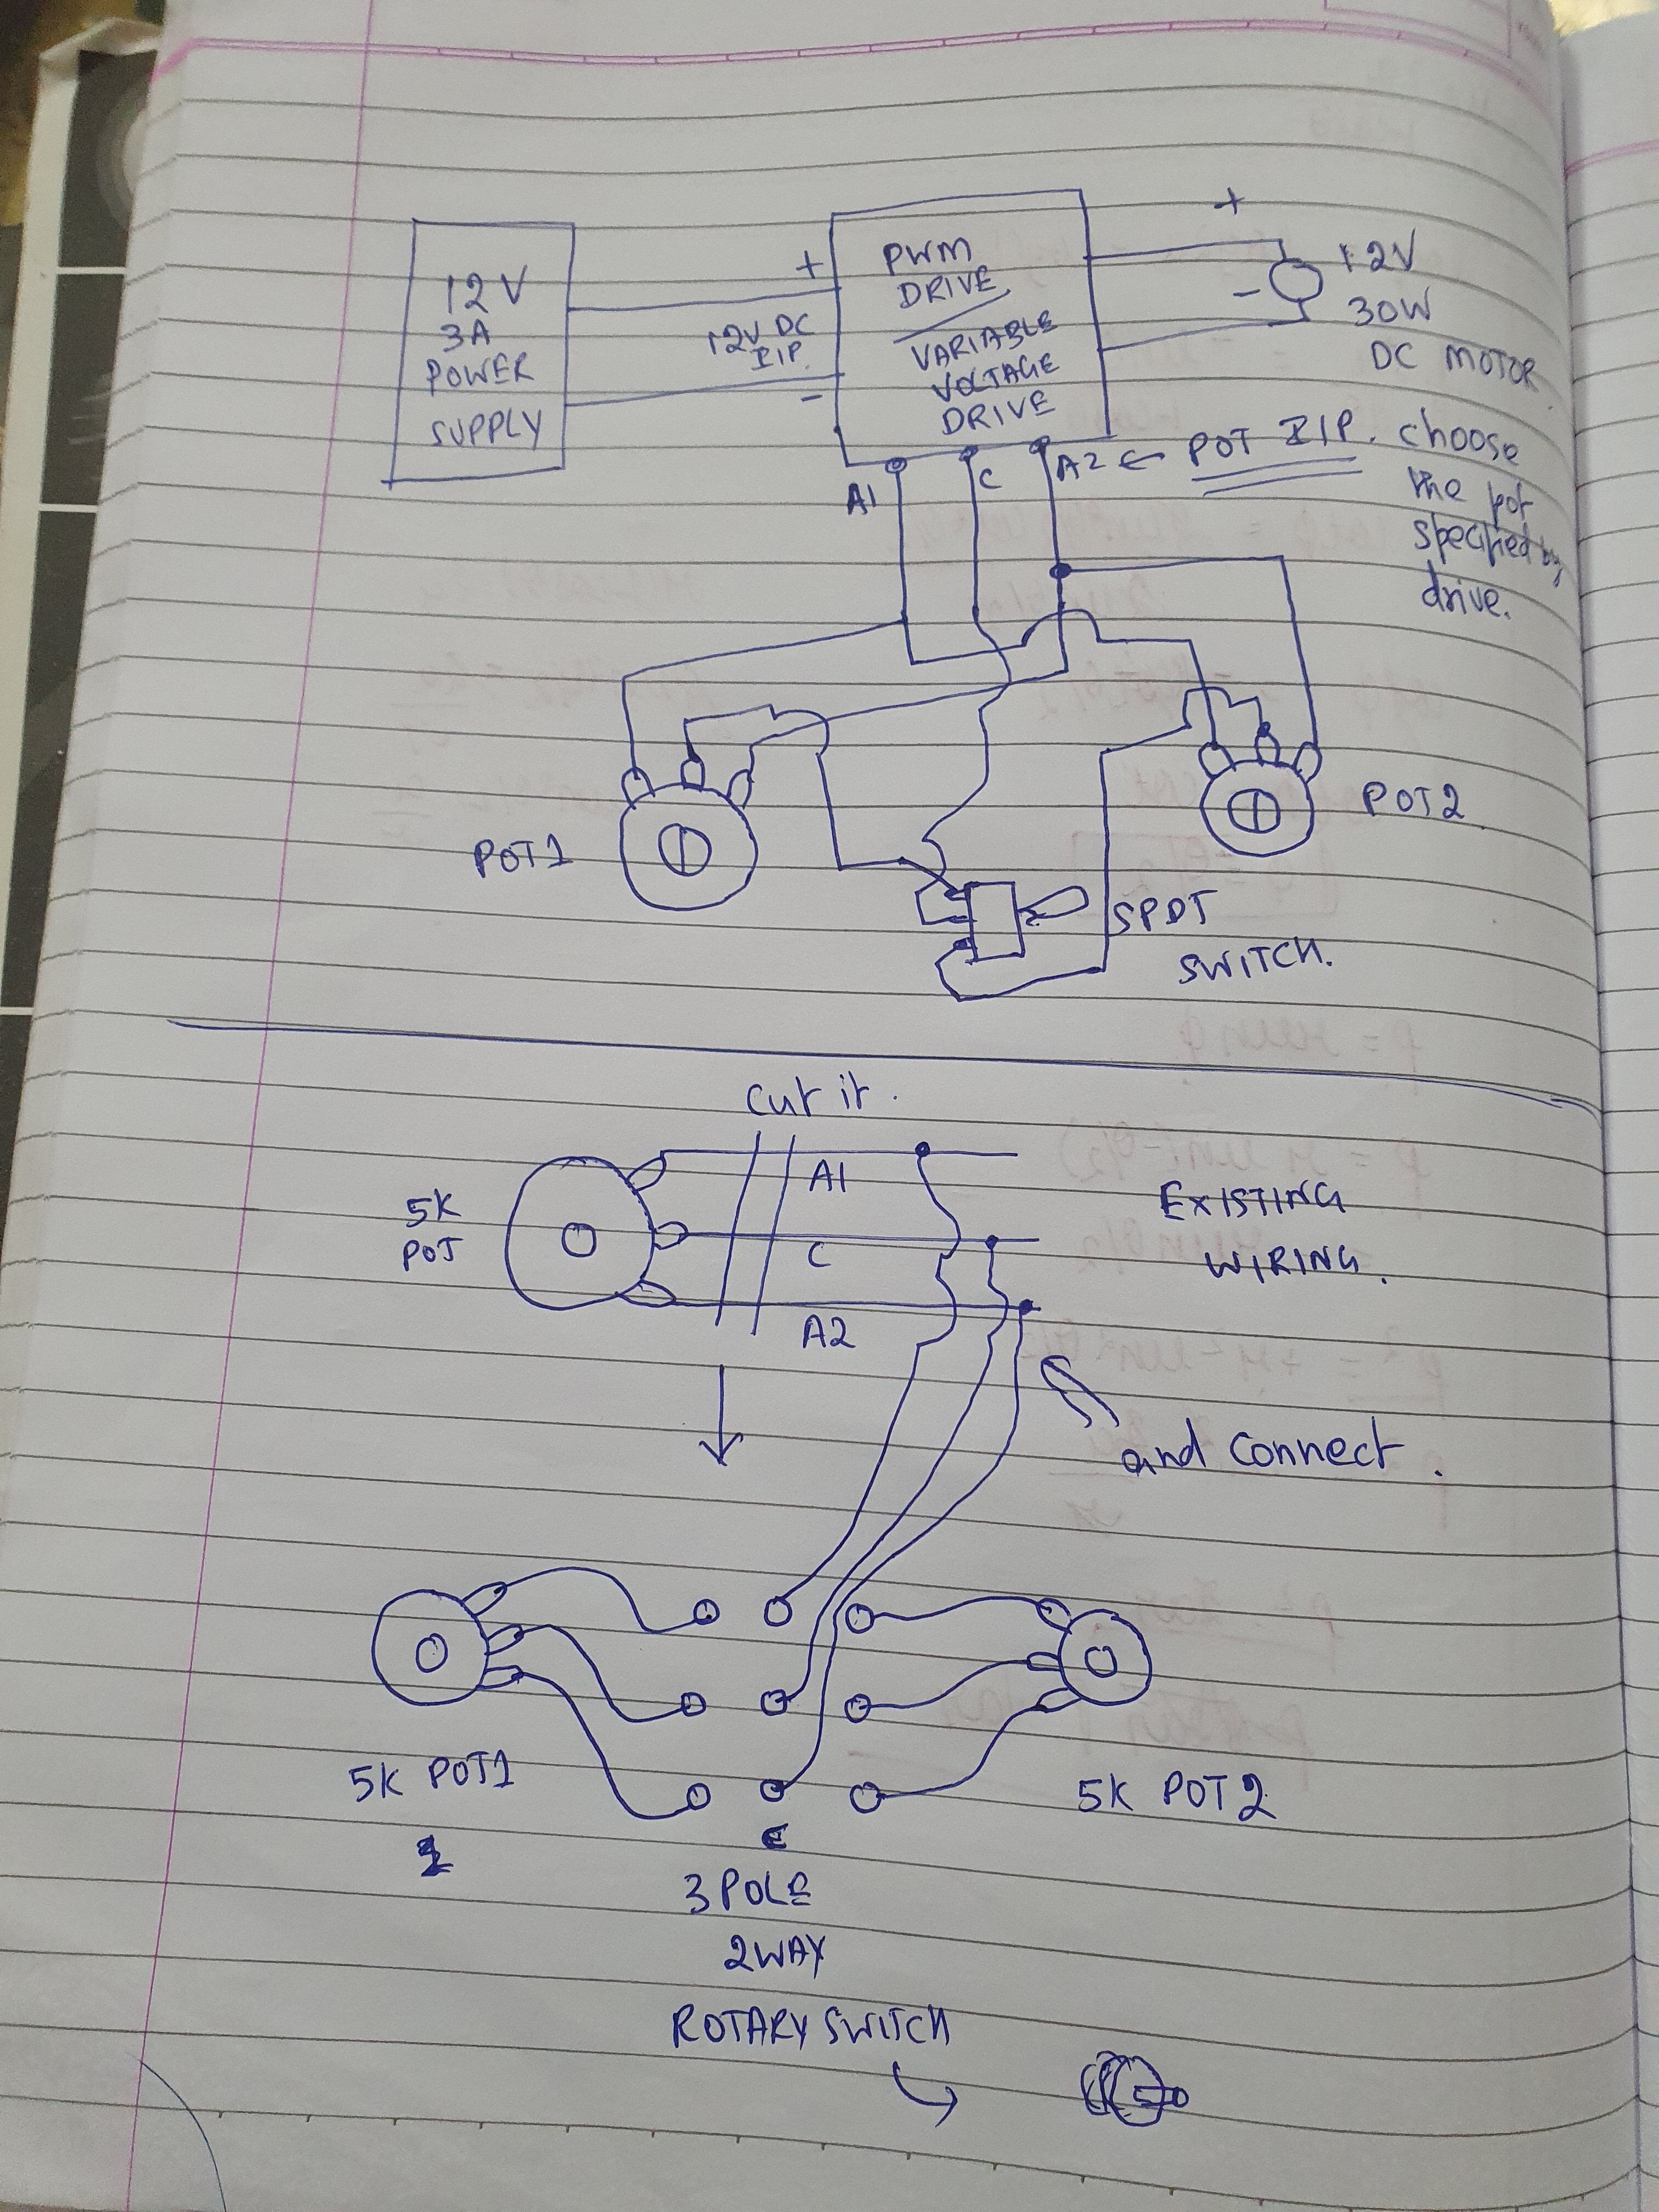 12V
3A
POWER
SUPPLY
+
12V DC
I/P.
-
PWM
DRIVE/
VARIABLE
VOLTAGE
DRIVE
+
-
12V
30W
DC MOTOR.
A1
C
A2 ← POT I/P. choose
the pot
specified by
drive.
POT1
POT2
SPDT
SWITCH.
Cut it.
5K
POT
A1
C
A2
EXISTING
WIRING.
and connect.
5K POT1
5K POT2
1
C
3 POLE
2WAY
ROTARY SWITCH